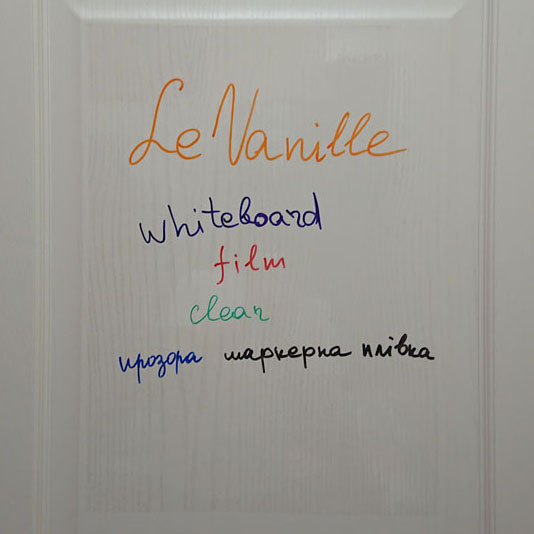 Le Vanille
whiteboard
film
clear
прозора маркерна плівка